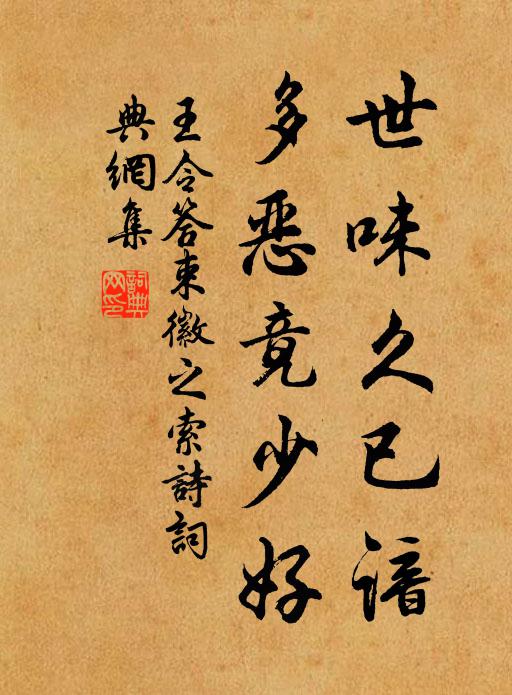 世味久已谙
多恶竟少好
王令答束徽之索詩詞
典網集
詞典网印